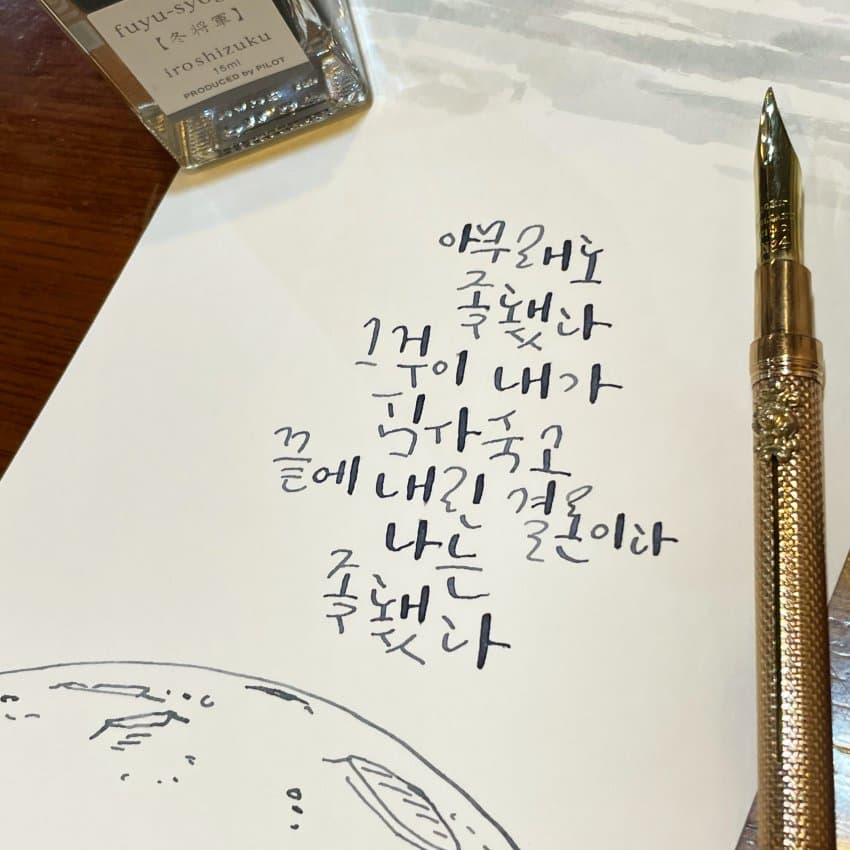 fuyu-syog
【冬将軍】
iroshizuku
15ml
PRODUCED by PILOT
아무래도
좆됐다
그것이 내가
심사숙고
끝에 내린 결론이다
나는
좆됐다